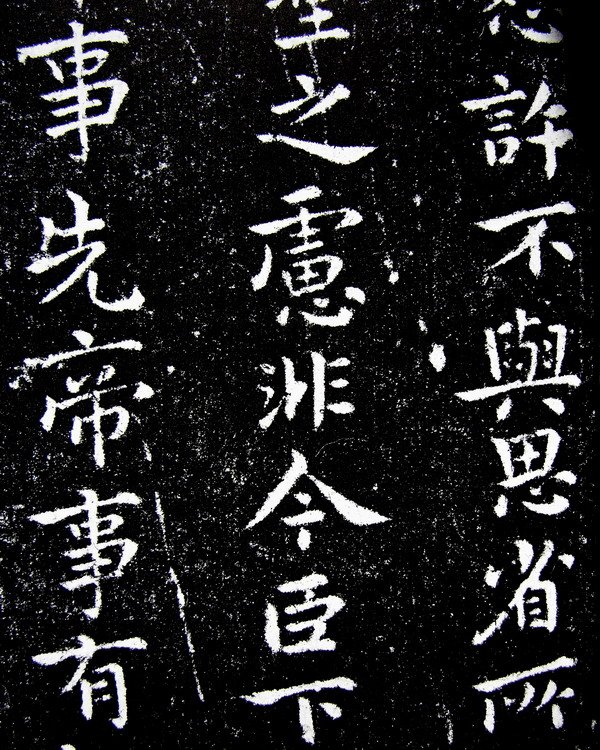 許不與思省所
之慮非今臣下
事先帝事有